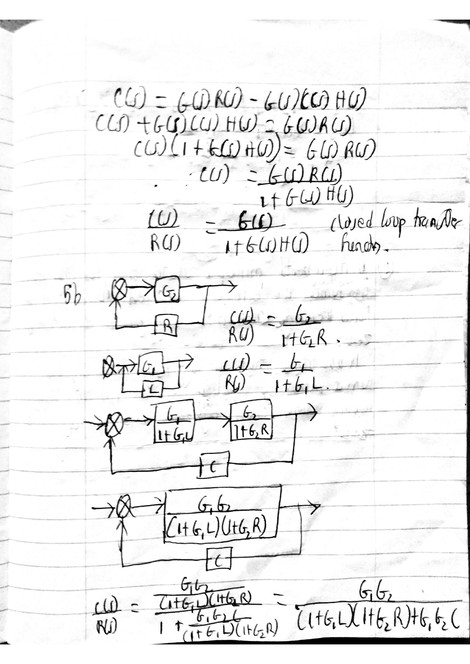 C(s) = G(s)R(s) - G(s)C(s)H(s)
C(s) + G(s)C(s)H(s) = G(s)R(s)
C(s)(1 + G(s)H(s)) = G(s)R(s)
C(s) = G(s)R(s) / 1 + G(s)H(s)
C(s)/R(s) = G(s) / 1 + G(s)H(s) closed loop transfer
function.
5b
G2
R
C(s)/R(s) = G2 / 1+G2R.
G1
L
C(s)/R(s) = G1 / 1+G1L.
G1 / 1+G1L
G2 / 1+G2R
C
G1G2 / (1+G1L)(1+G2R)
C
C(s)/R(s) = G1G2 / (1+G1L)(1+G2R) / 1 + G1G2C / (1+G1L)(1+G2R) = G1G2 / (1+G1L)(1+G2R)+G1G2C